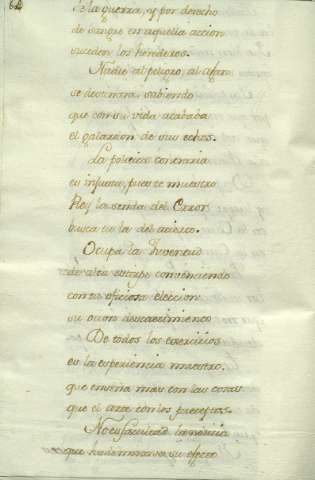 de la guerra, y por derecho
de sangre en aquella accion
suceden los herederos.
Nadie al peligro, al afan
se destinara sabiendo
que con su vida acababa
el galardon de sus echos.
La politica contraria
es injusta, pues te muestro
Rey la senda del Error
busca tu la del acierto.
Ocupa la Juventud
de convenciendo
con tu oficiosa eleccion
su decaecimiento
De todos los exercicios
es la esperiencia maestro.
que enseña mas con las cosas
que el arte con los preceptos.
No es facultad la
que su efecto